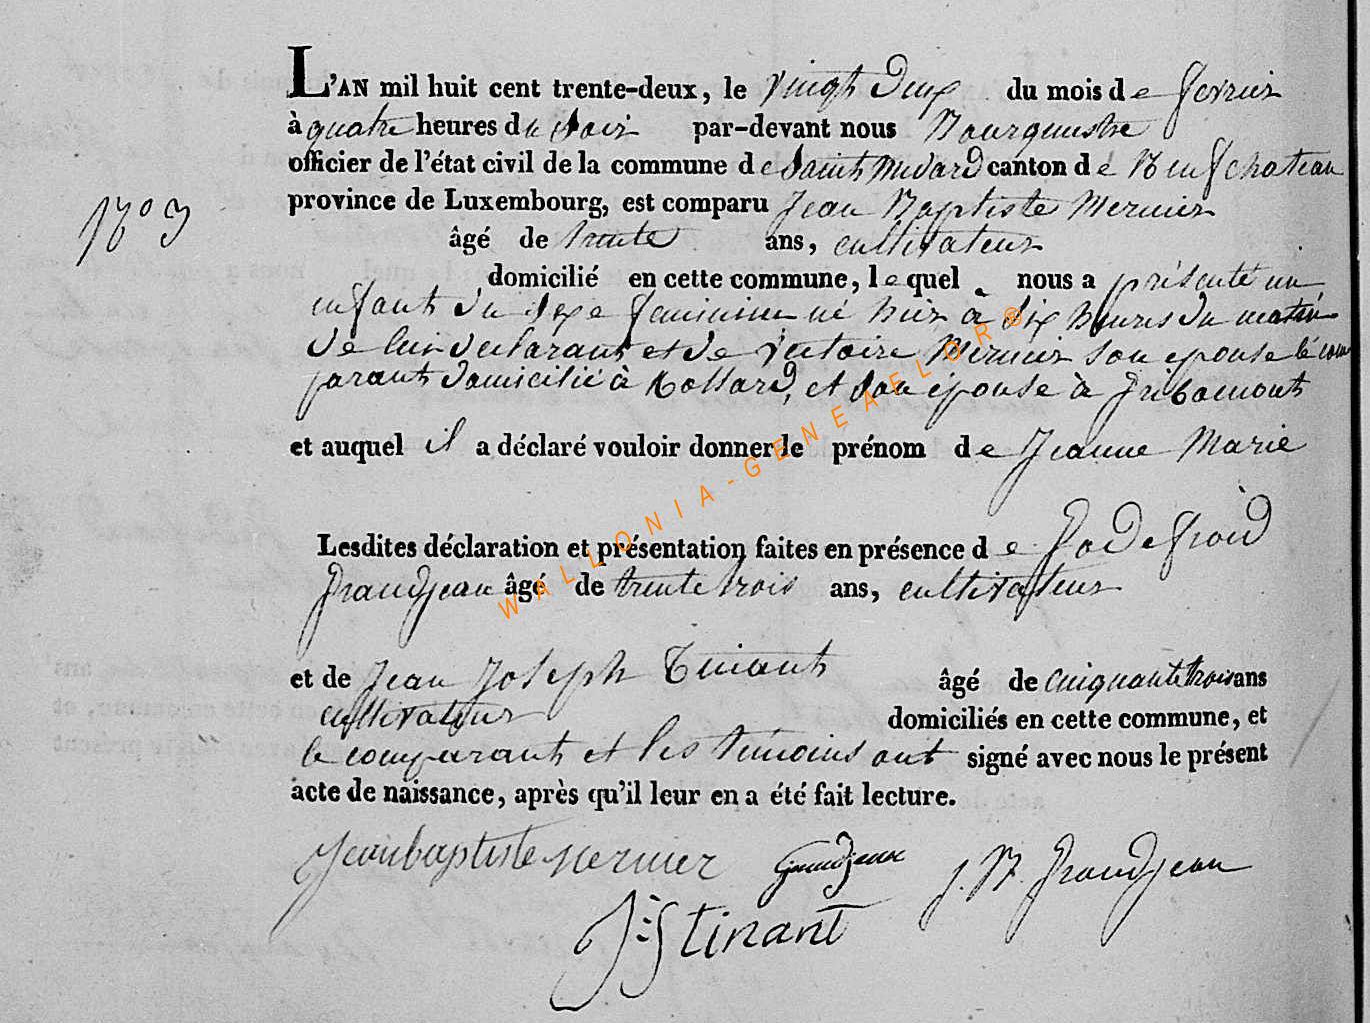 L'AN mil huit cent trente-deux, le vingt deux du mois de fevrier
à quatre heures du soir par-devant nous Bourguestre
officier de l'état civil de la commune de Saint Medard canton de Neufchateau
province de Luxembourg, est comparu Jean Baptiste Mernier
âgé de trente ans, cultivateur
domicilié en cette commune, lequel nous a présenté un
enfant du sexe feminin né hier à dix heures du matin
de lui declarant et de Victoire Mernier son epouse le com
parant domicilié à, et son épouse à Gribomont
et auquel il a déclaré vouloir donner le prénom de Jeanne Marie
Lesdites déclaration et présentation faites en présence de Godefroid
Grandjean âgé de trente trois ans, cultivateur
et de Jean Joseph Tinant âgé de cinquante trois ans
cultivateur domiciliés en cette commune, et
le comparant et les temoins ont signé avec nous le présent
acte de naissance, après qu'il leur en a été fait lecture.
Jeanbaptiste Mernier Grandjean J. N. Grandjean
J:S tinant
N° 3
WALLONIA-GENEAELOR®